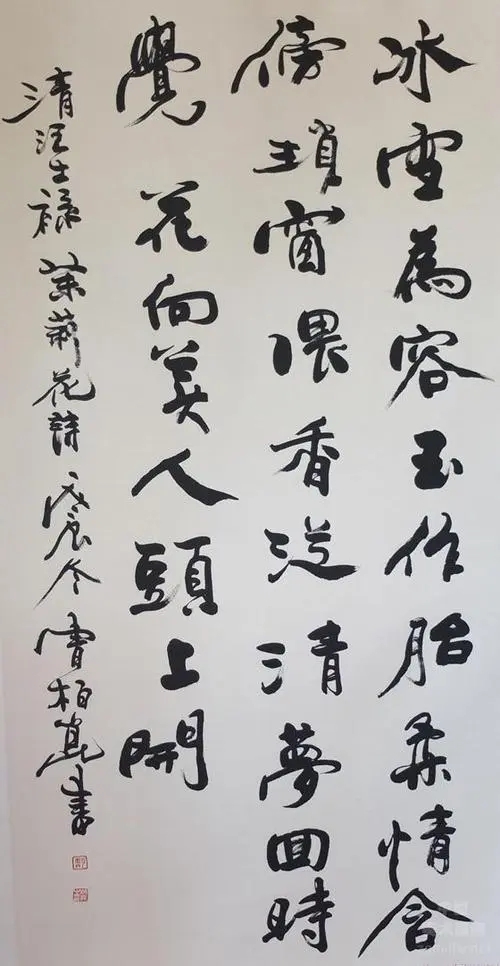 冰雪為容玉作胎柔情含
傍瑣窗隈香從清夢回時
覺花向美人頭上開
清汪士祿茉莉花詩冬曹柏崑書